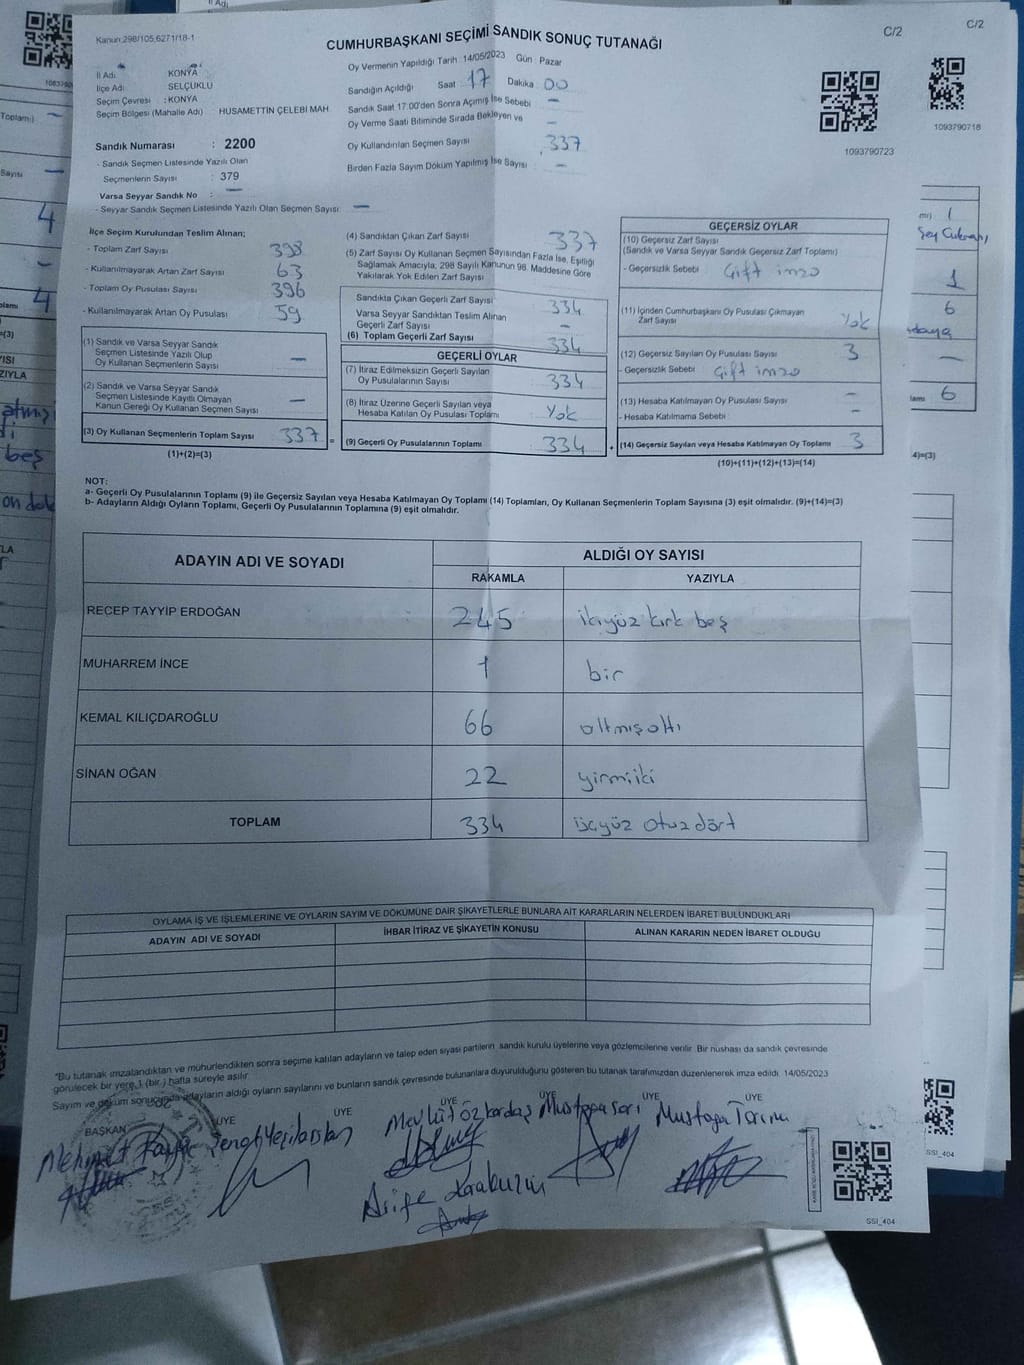 Kanun:298/105,6271/18-1
C/2
C/2
CUMHURBAŞKANI SEÇİMİ SANDIK SONUÇ TUTANAĞI
İl Adı : KONYA
İlçe Adı : SELÇUKLU
Seçim Çevresi : KONYA
Seçim Bölgesi (Mahalle Adı) HUSAMETTİN ÇELEBİ MAH.
Oy Vermenin Yapıldığı Tarih 14/05/2023 Gün Pazar
Sandığın Açıldığı Saat 17 Dakika 00
Sandık Saat 17:00'den Sonra Açılmış İse Sebebi —
Oy Verme Saati Bitiminde Sırada Bekleyen ve —
Oy Kullandırılan Seçmen Sayısı 337
Birden Fazla Sayım Döküm Yapılmış İse Sayısı —
1093790723
1093790718
Sandık Numarası : 2200
- Sandık Seçmen Listesinde Yazılı Olan
Seçmenlerin Sayısı : 379
Varsa Seyyar Sandık No : —
- Seyyar Sandık Seçmen Listesinde Yazılı Olan Seçmen Sayısı: —
İlçe Seçim Kurulundan Teslim Alınan;
- Toplam Zarf Sayısı 398
- Kullanılmayarak Artan Zarf Sayısı 63
- Toplam Oy Pusulası Sayısı 396
- Kullanılmayarak Artan Oy Pusulası 59
(1) Sandık ve Varsa Seyyar Sandık
Seçmen Listesinde Yazılı Olup
Oy Kullanan Seçmenlerin Sayısı —
(2) Sandık ve Varsa Seyyar Sandık
Seçmen Listesinde Kayıtlı Olmayan
Kanun Gereği Oy Kullanan Seçmen Sayısı —
(3) Oy Kullanan Seçmenlerin Toplam Sayısı 337 =
(1)+(2)=(3)
(4) Sandıktan Çıkan Zarf Sayısı 337
(5) Zarf Sayısı Oy Kullanan Seçmen Sayısından Fazla İse, Eşitliği
Sağlamak Amacıyla, 298 Sayılı Kanunun 98. Maddesine Göre
Yakılarak Yok Edilen Zarf Sayısı
Sandıkta Çıkan Geçerli Zarf Sayısı 334
Varsa Seyyar Sandıktan Teslim Alınan
Geçerli Zarf Sayısı —
(6) Toplam Geçerli Zarf Sayısı 334
GEÇERLİ OYLAR
(7) İtiraz Edilmeksizin Geçerli Sayılan
Oy Pusulalarının Sayısı 334
(8) İtiraz Üzerine Geçerli Sayılan veya
Hesaba Katılan Oy Pusulası Toplamı Yok
(9) Geçerli Oy Pusulalarının Toplamı 334 +
GEÇERSİZ OYLAR
(10) Geçersiz Zarf Sayısı
(Sandık ve Varsa Seyyar Sandık Geçersiz Zarf Toplamı)
- Geçersizlik Sebebi Çift imza
(11) İçinden Cumhurbaşkanı Oy Pusulası Çıkmayan
Zarf Sayısı Yok
(12) Geçersiz Sayılan Oy Pusulası Sayısı 3
- Geçersizlik Sebebi Çift imza
(13) Hesaba Katılmayan Oy Pusulası Sayısı —
- Hesaba Katılmama Sebebi —
(14) Geçersiz Sayılan veya Hesaba Katılmayan Oy Toplamı 3
(10)+(11)+(12)+(13)=(14)
NOT:
a- Geçerli Oy Pusulalarının Toplamı (9) ile Geçersiz Sayılan veya Hesaba Katılmayan Oy Toplamı (14) Toplamları, Oy Kullanan Seçmenlerin Toplam Sayısına (3) eşit olmalıdır. (9)+(14)=(3)
b- Adayların Aldığı Oyların Toplamı, Geçerli Oy Pusulalarının Toplamına (9) eşit olmalıdır.
ADAYIN ADI VE SOYADI
ALDIĞI OY SAYISI
RAKAMLA YAZIYLA
RECEP TAYYİP ERDOĞAN 245 ikiyüz kırk beş
MUHARREM İNCE 1 bir
KEMAL KILIÇDAROĞLU 66 altmışaltı
SİNAN OĞAN 22 yirmiiki
TOPLAM 334 üçyüz otuz dört
OYLAMA İŞ VE İŞLEMLERİNE VE OYLARIN SAYIM VE DÖKÜMÜNE DAİR ŞİKAYETLERLE BUNLARA AİT KARARLARIN NELERDEN İBARET BULUNDUKLARI
ADAYIN ADI VE SOYADI İHBAR İTİRAZ VE ŞİKAYETİN KONUSU ALINAN KARARIN NEDEN İBARET OLDUĞU
"Bu tutanak imzalandıktan ve mühürlendikten sonra seçime katılan adayların ve talep eden siyasi partilerin sandık kurulu üyelerine veya gözlemcilerine verilir. Bir nüshası da sandık çevresinde
görülecek bir yere 1 (bir) hafta süreyle asılır.
Sayım ve döküm sonucunda adayların aldığı oyların sayılarını ve bunların sandık çevresinde bulunanlara duyurulduğunu gösteren bu tutanak tarafımızdan düzenlenerek imza edildi. 14/05/2023
BAŞKAN ÜYE ÜYE ÜYE ÜYE ÜYE ÜYE
Mehmet Kaya Şengül Yeşilarslan Mevlüt Özkardaş Mustafa Sarı Mustafa Torun
Arife Karabulut
SSI_404
SSI_404